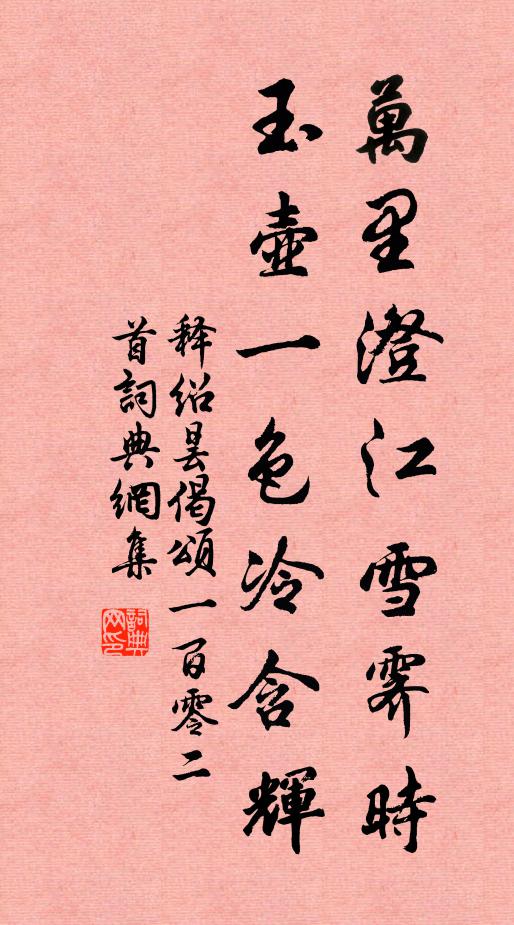 萬里澄江雪霽時
玉壺一色冷含輝
释紹曇偈頌一百零二
首詞典網集
詞典网印